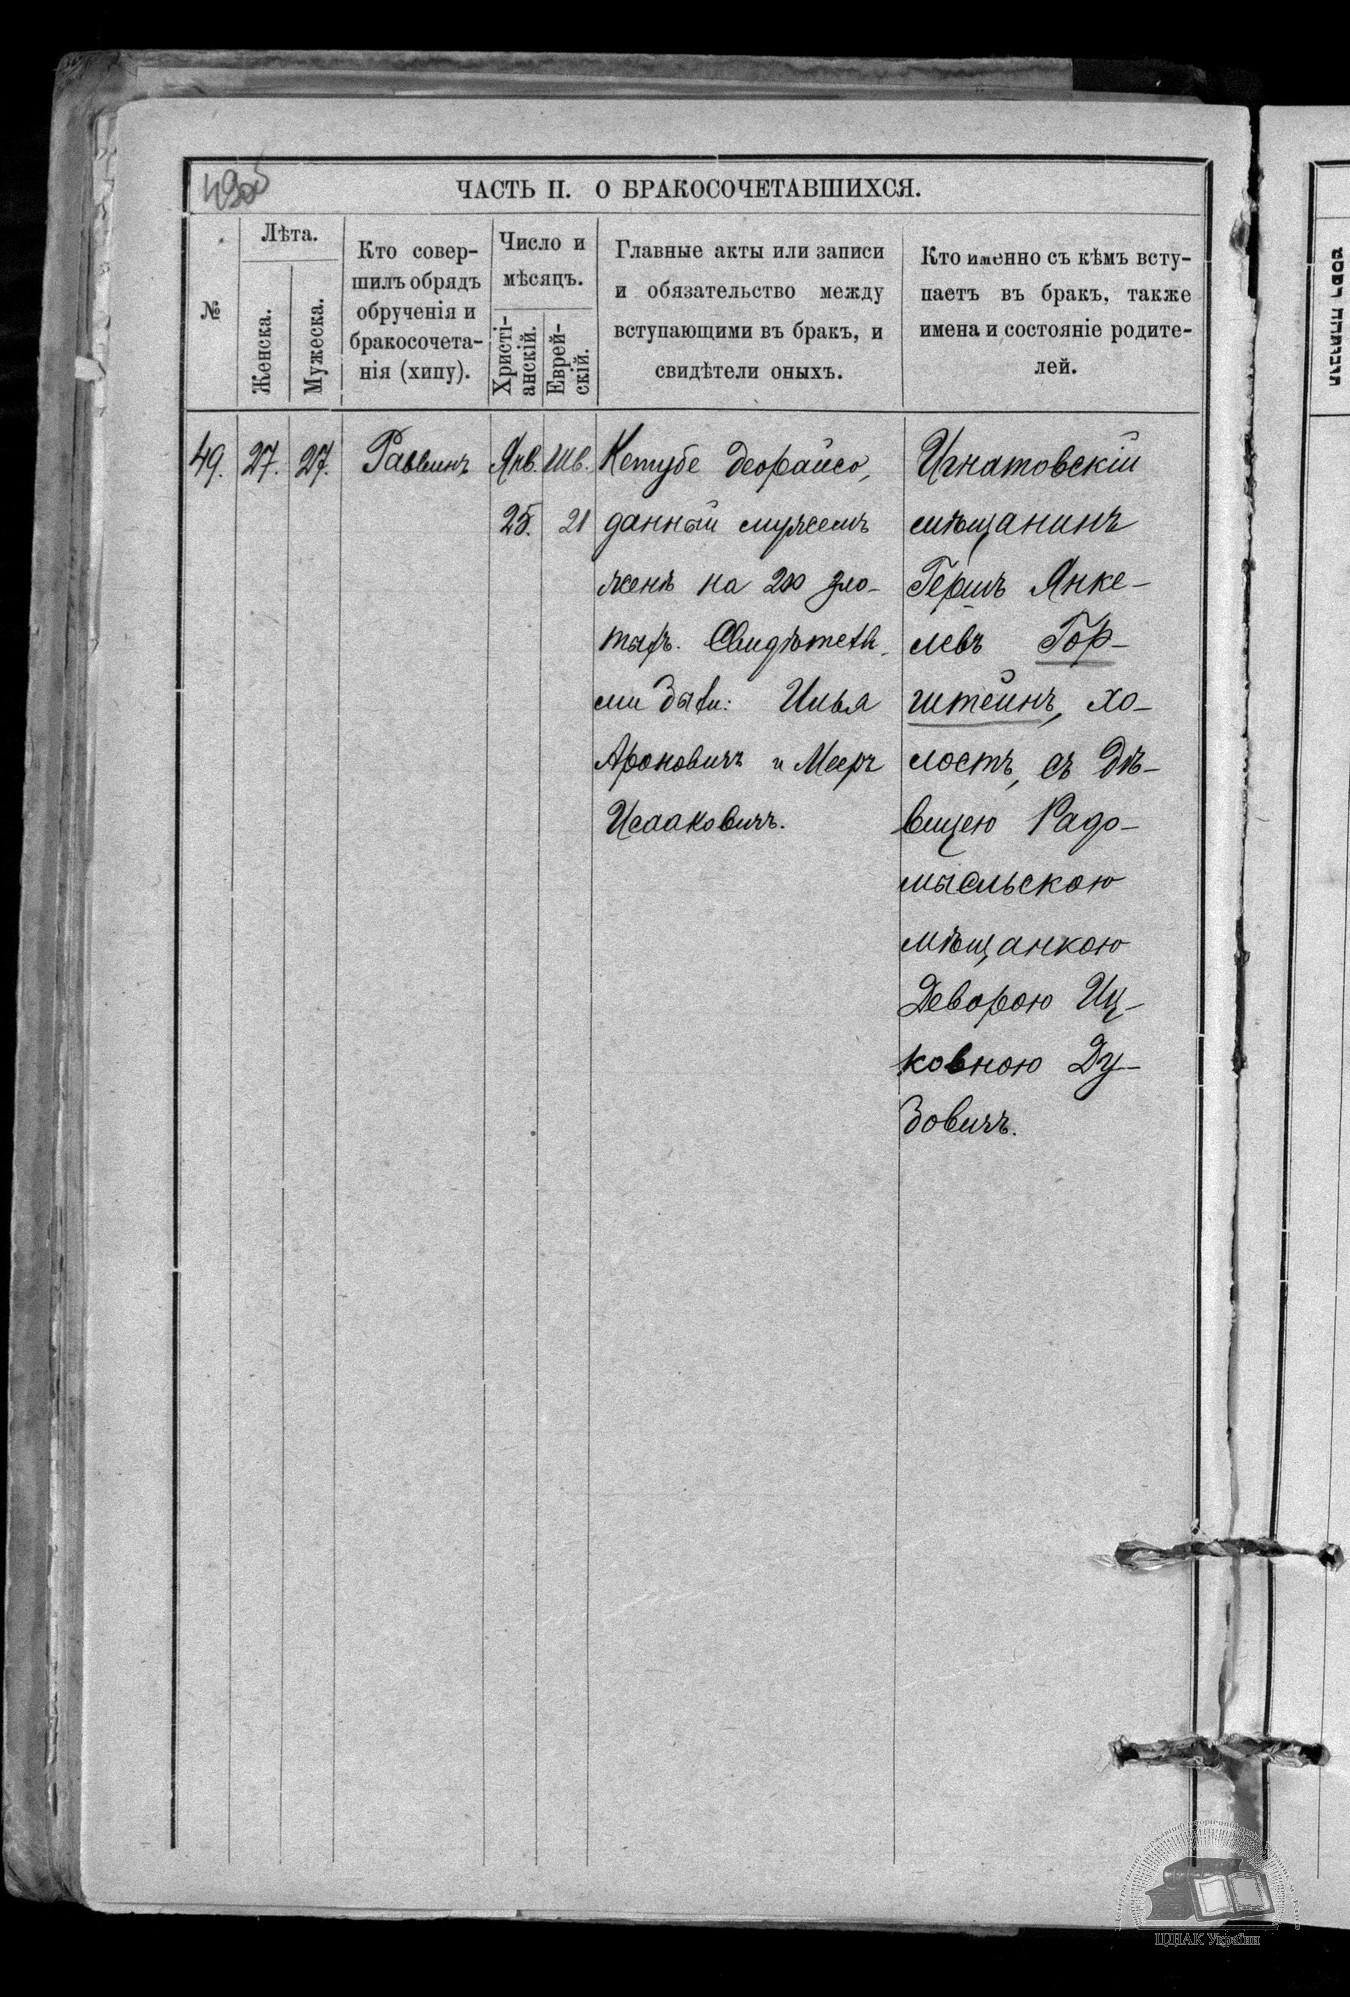 49об
ЧАСТЬ II. О БРАКОСОЧЕТАВШИХСЯ.
№
Лѣта.
Женска.
Мужеска.
Кто совер-
шилъ обрядъ
обрученія и
бракосочета-
нія (хипу).
Число и
мѣсяцъ.
Христі-
анскій.
Еврей-
скій.
Главные акты или записи
и обязательство между
вступающими въ бракъ, и
свидѣтели оныхъ.
Кто именно съ кѣмъ всту-
паетъ въ бракъ, также
имена и состояніе родите-
лей.
49.
27.
27.
Раввинъ
Янв.
25.
Шв.
21
Кетубе деорайсо,
данный мужемъ
женѣ на 200 зло-
тыхъ. Свидѣтеля-
ми были: Илья
Ароновичъ и Мееръ
Исааковичъ.
Игнатовскій
мѣщанинъ
Гершъ Янке-
левъ Гор-
штейнъ, хо-
лостъ, съ дѣ-
вицею Радо-
мысльскою
мѣщанкою
Деворою Иц-
ковною Ду-
бовичъ.
ЦДІАК України